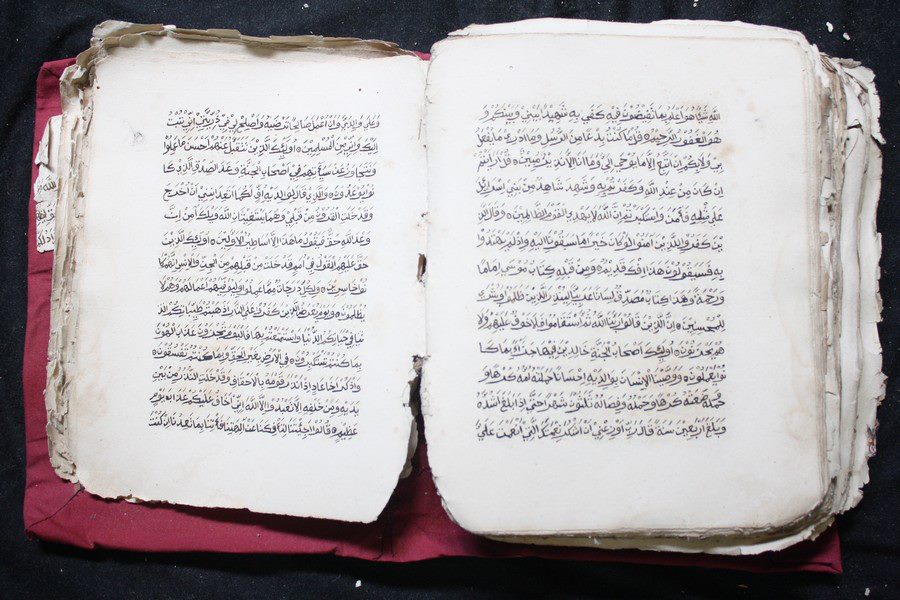 الله شيئا هو اعلم بما تفيضون فيه كفى به شهيدا بيني وبينكم و
هو الغفور الرحيم ه قل ما كنت بدعا من الرسل وما ادري ما يفعل
بي ولا بكم ان اتبع الا ما يوحى الي وما انا الا نذير مبين ه قل ارايتم
ان كان من عند الله وكفرتم به وشهد شاهد من بني اسرائيل
على مثله فآمن واستكبرتم ان الله لا يهدي القوم الظالمين ه وقال الذ
ين كفروا للذين آمنوا لو كان خيرا ما سبقونا اليه واذ لم يهتدوا
به فسيقولون هذا افك قديم ه ومن قبله كتاب موسى اماما
ورحمة وهذا كتاب مصدق لسانا عربيا لينذر الذين ظلموا وبشرى
للمحسنين ه ان الذين قالوا ربنا الله ثم استقاموا فلا خوف عليهم ولا
هم يحزنون ه اولئك اصحاب الجنة خالدين فيها جزاء بما كا
نوا يعملون ه ووصينا الانسان بوالديه احسانا حملته امه كرها و
كرها وحمله وفصاله ثلثون شهرا حتى اذا بلغ اشده
وبلغ اربعين سنة قال رب اوزعني ان اشكر نعمتك التي انعمت علي
وعلى والدي وان اعمل صالحا ترضيه واصلح لي في ذريتي اني تبت
اليك واني من المسلمين ه اولئك الذين نتقبل عنهم احسن ما عملوا
ونتجاوز عن سيئاتهم في اصحاب الجنة وعد الصدق الذي كا
نوا يوعدون ه والذي قال لوالديه اف لكما اتعدانني ان اخرج
وقد خلت القرون من قبلي وهما يستغيثان الله ويلك آمن ان
وعد الله حق فيقول ما هذا الا اساطير الاولين ه اولئك الذين
حق عليهم القول في امم قد خلت من قبلهم من الجن والانس انهم كا
نوا خاسرين ه ولكل درجات مما عملوا وليوفيهم اعمالهم وهم لا
يظلمون ه ويوم يعرض الذين كفروا على النار اذهبتم طيباتكم
نيا في حياتكم الدنيا واستمتعتم بها فاليوم تجزون عذاب الهون
بما كنتم تستكبرون ه في الارض بغير الحق وبما كنتم تفسقون ه
واذكر اخا عاد اذ انذر قومه بالاحقاف وقد خلت النذر من بين
يديه ومن خلفه الا تعبدوا الا الله اني اخاف عليكم عذاب يوم
عظيم ه قالوا اجئتنا لتافكنا عن آلهتنا فاتنا بما تعدنا ان كنت